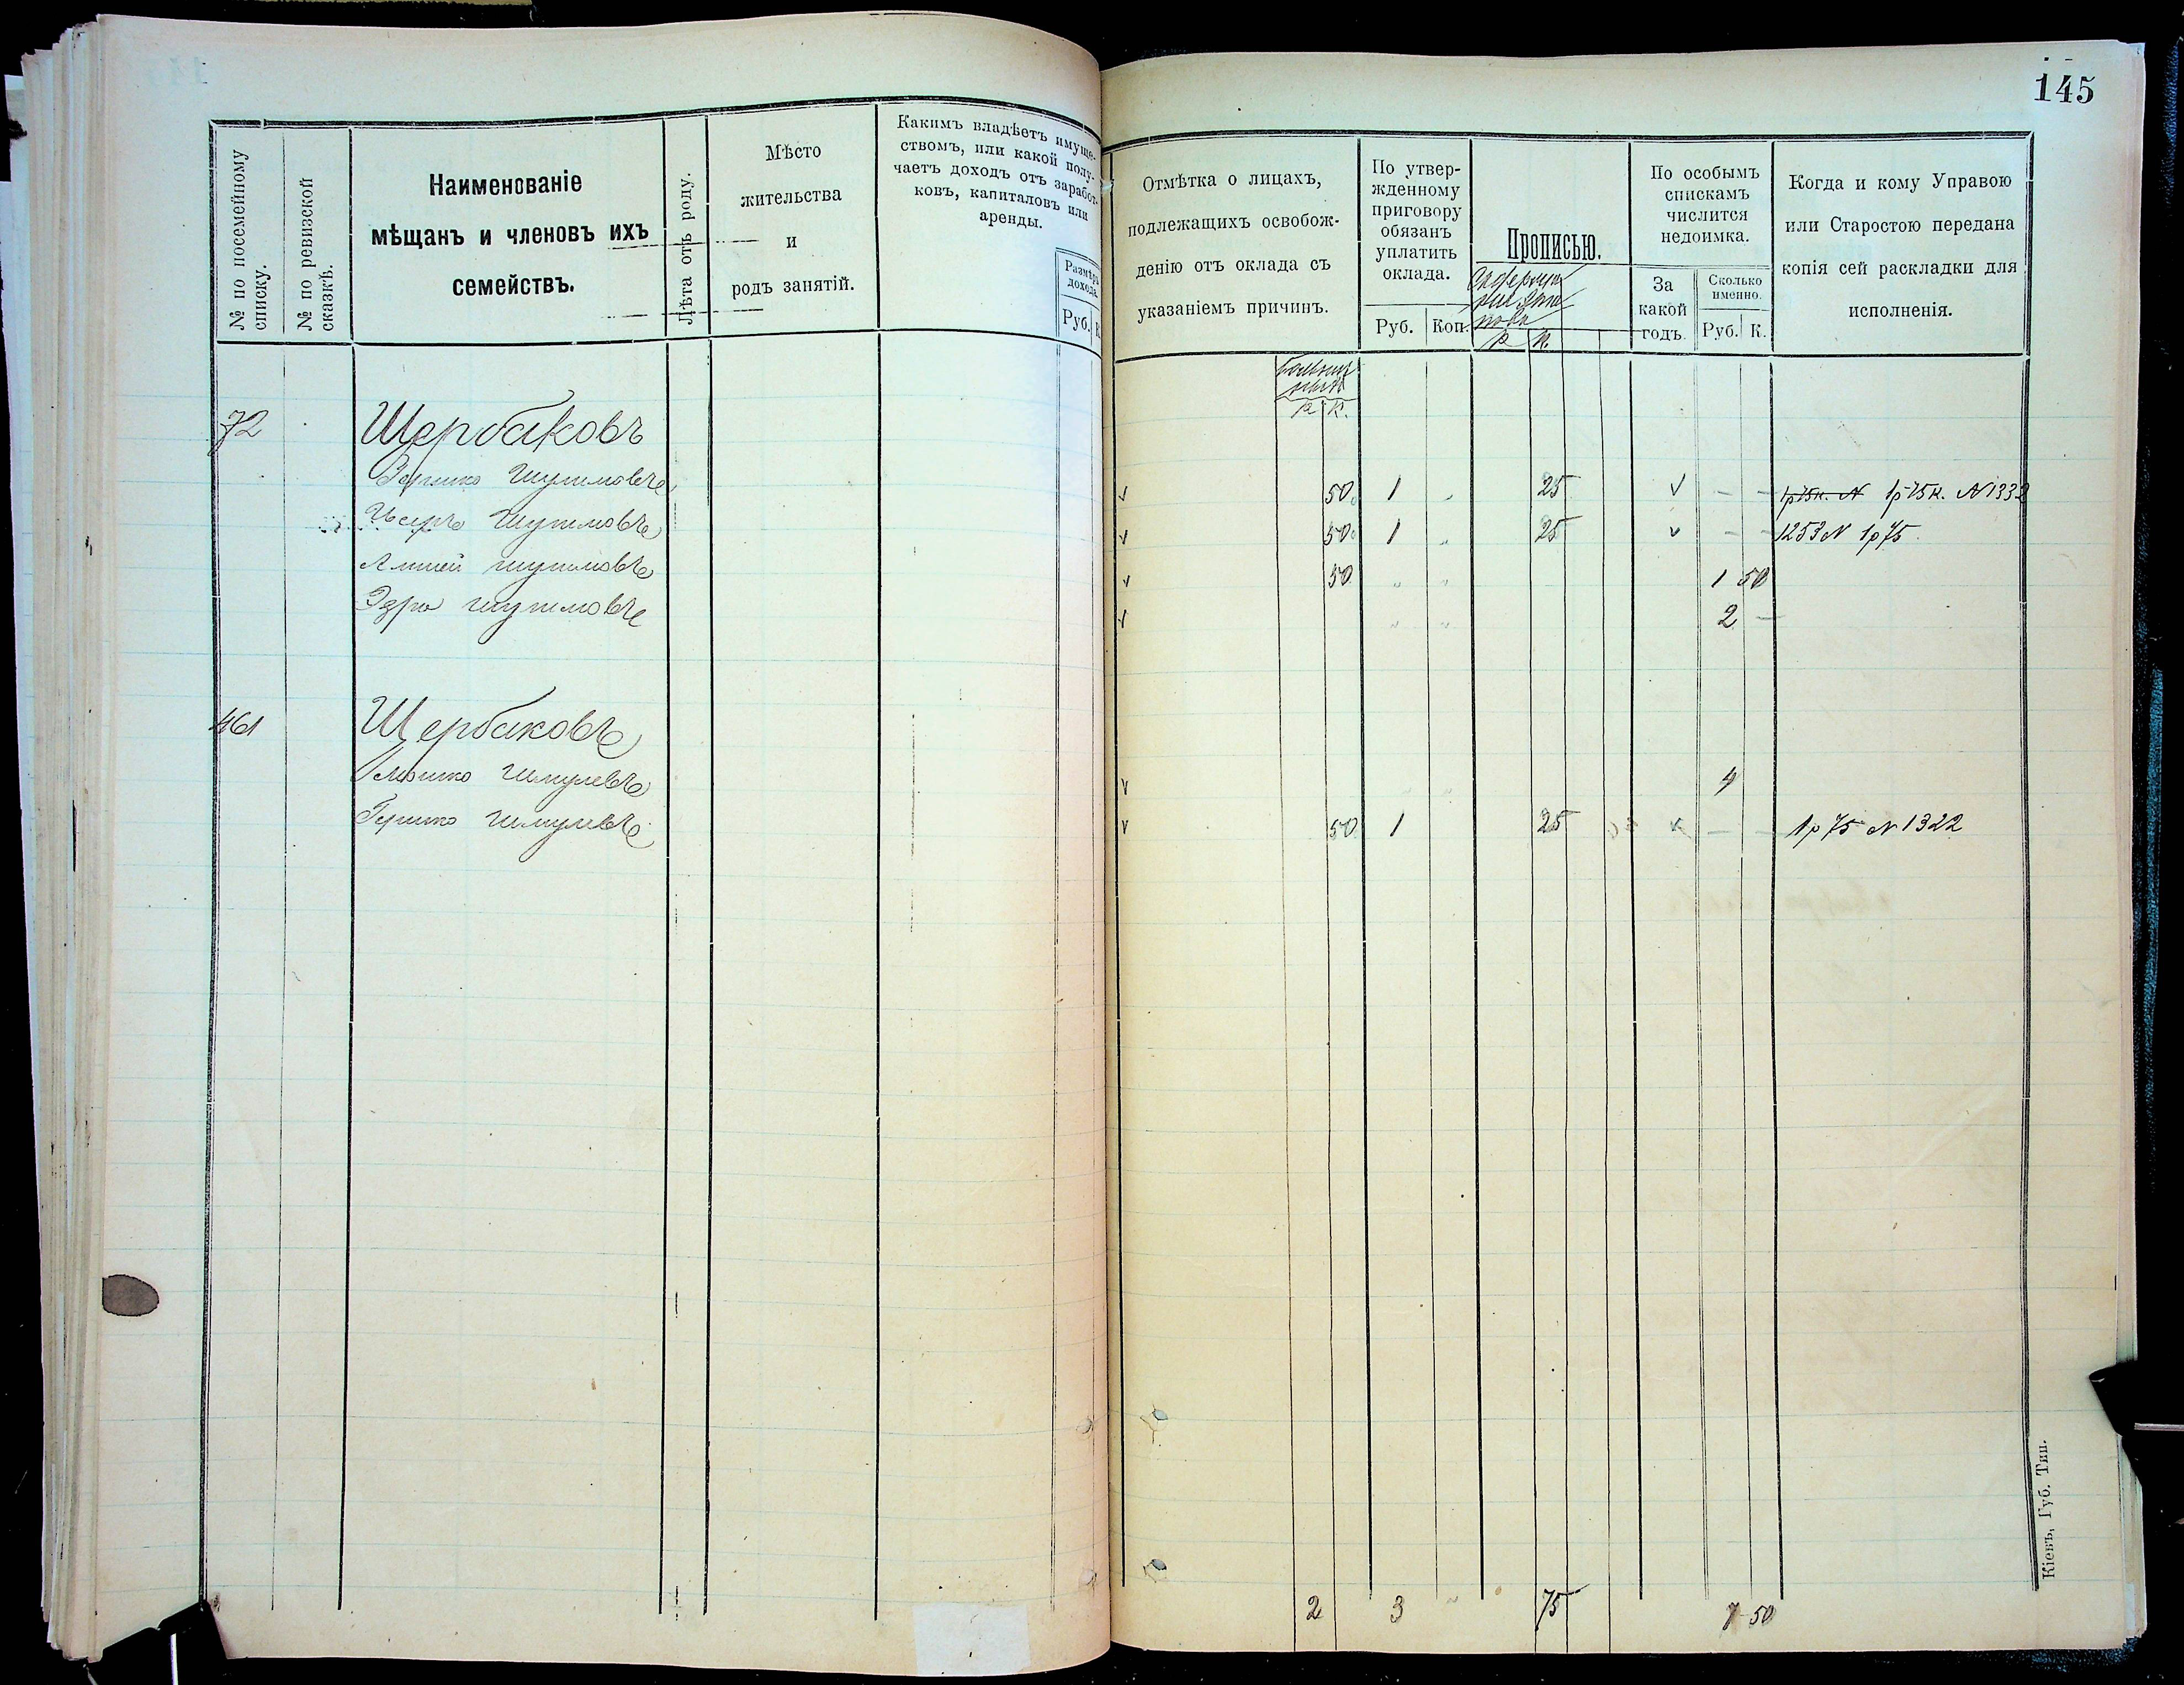 145
№ по посемейному списку.
№ по ревизской сказкѣ.
Наименованіе
мѣщанъ и членовъ ихъ
семействъ.
Лѣта отъ роду.
Мѣсто
жительства
и
родъ занятій.
Какимъ владѣетъ имуще-
ствомъ, или какой полу-
чаетъ доходъ отъ заработ-
ковъ, капиталовъ или
аренды.
Размѣръ
дохода.
Руб. К.
Отмѣтка о лицахъ,
подлежащихъ освобож-
денію отъ оклада съ
указаніемъ причинъ.
По утвер-
жденному
приговору
обязанъ
уплатить
оклада.
Руб. Коп.
Прописью.
Р К.
По особымъ
спискамъ
числится
недоимка.
За
какой
годъ.
Сколько
именно.
Руб. К.
Когда и кому Управою
или Старостою передана
копія сей раскладки для
исполненія.
Р К.
72 Щербаковъ
50 1 " 25 v — — 1р 75к. N 1р 75к. N 1332
50 1 " 25 v — — 1253 N 1р 75
50 " " 1 50
" " 2 —
461 Щербаковъ
Шмулевъ v " " 4
Гершко Шмулевъ v 50 1 25 — — 1р 75 N 1322
2 3 " 75 7 50
Кіевъ, Губ. Тип.